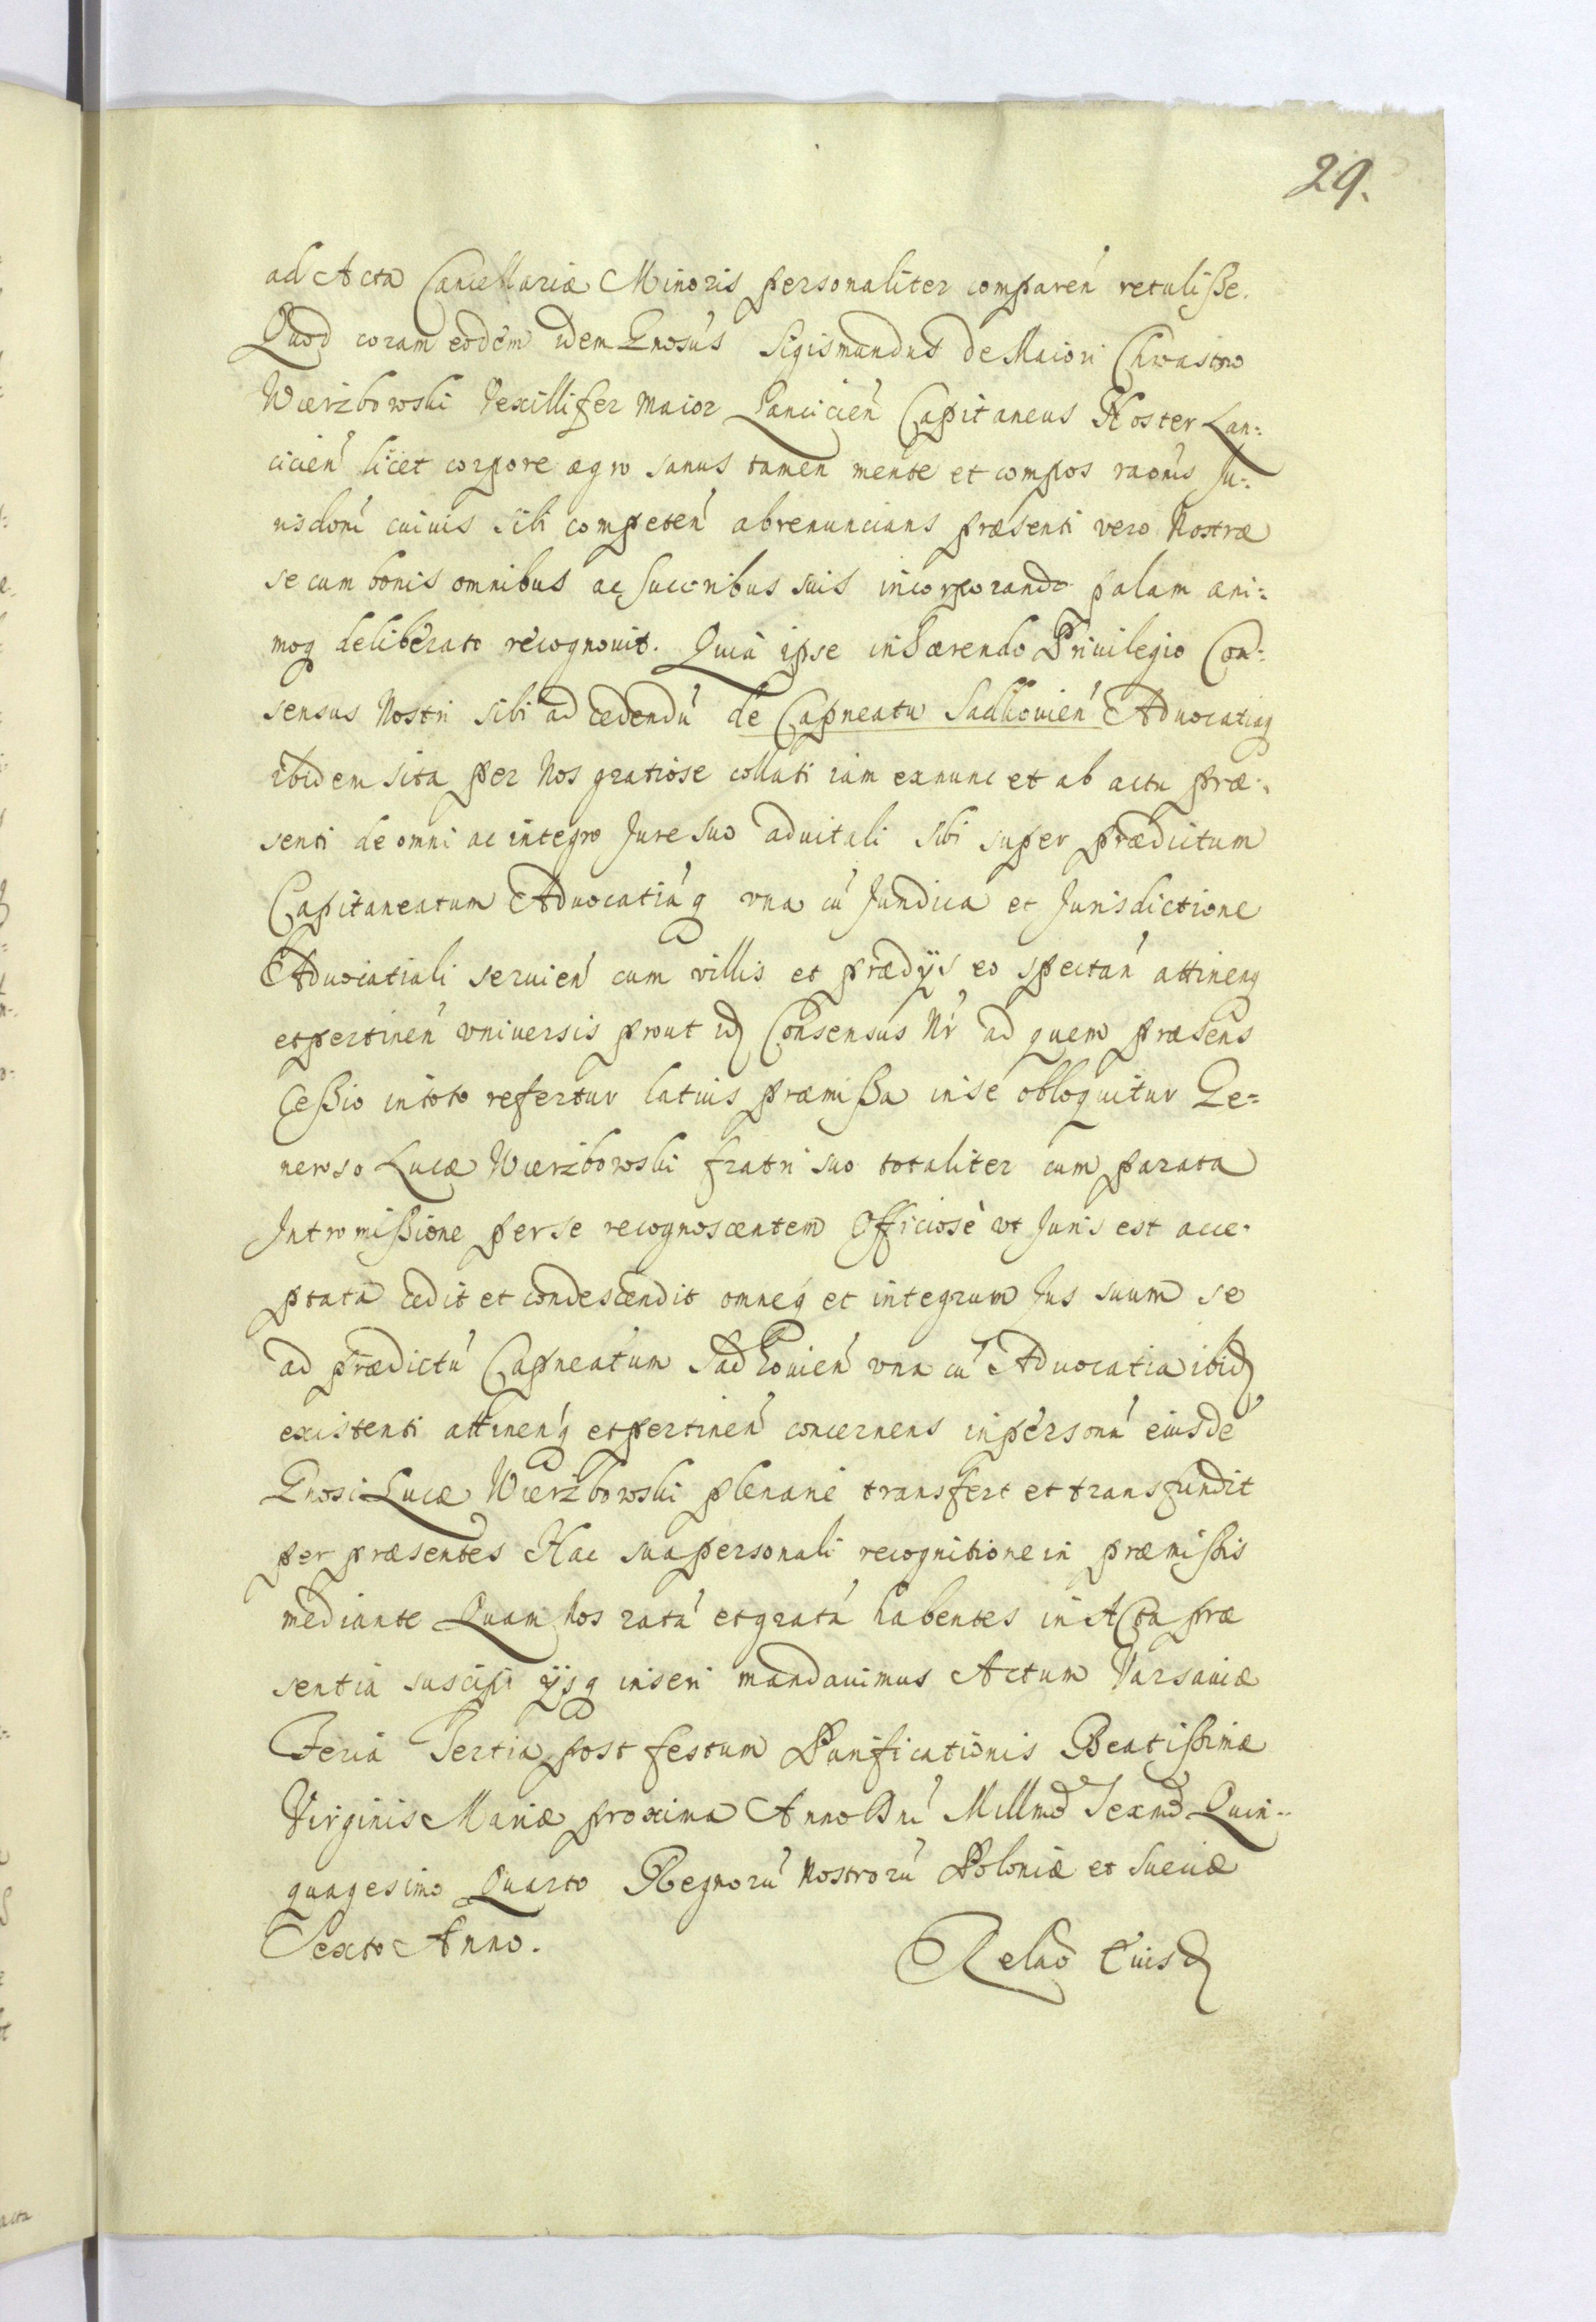 29.
ad Acta Cancellariæ Minoris personaliter comparen̄ retulisse.
Quod coram eodem idem Gnosus Sigismundus de Maiori Chrząstow
Wierzbowski Vexillifer Maior Lancicien̄ Capitaneus Noster Lan:
cicien̄ licet corpore ægro sanus tamen mente et compos raōnis Ju:
risdōni cuiuis sibi competen̄ abrenuncians præsenti vero Nostræ
se cum bonis omnibus ac succ̄ribus suis incorporando palam ani:
moq deliberato recognouit. Quia ipse inhærendo Priuilegio Con:
sensus Nostri sibi ad cedendū de Capneatu Sadkouien̄ Aduocatiaq
ibidem sita per Nos gratiose collati iam exnunc et ab actu præ:
senti de omni ac integro Jure suo aduitali sibi super prædictum
Capitaneatum Aduocatiāq vna cū Juridica et Jurisdictione
Aduocatiali seruien̄ cum villis et prædijs eo spectan̄ attinenq
et pertinen̄ vniversis prout id Consensus Nr̄ ad quem præsens
Cessio in toto refertur latius præmissa in se obloquitur Ge=
neroso Lucæ Wierzbowski fratri suo totaliter cum parata
Intromissione per se recognoscentem Officiosè vt Juris est acce:
ptata cedit et condescendit omneq et integrum Jus suum se
ad prædictū Capneatum Sadkouien̄ vna cū Aduocatia ibid
existenti attinen̄q et pertinen̄ concernens in personā eiusdē
Gnosi Lucæ Wierzbowski plenariè transfert et transfundit
per præsentes Hac sua personali recognitione in præmissis
mediante Quam Nos ratā et gratā habentes in Acta præ
sentia suscipi ijsq inseri mandauimus Actum Varsauiæ
Feria Tertia post festum Purificationis Beatissimæ
Virginis Mariæ proxima Anno Dnī Millmō Sexmō Quin:
quagesimo Quarto Regnorū Nostrorū Poloniæ et Sueciæ
Sexto Anno.
Relaō Eiusd